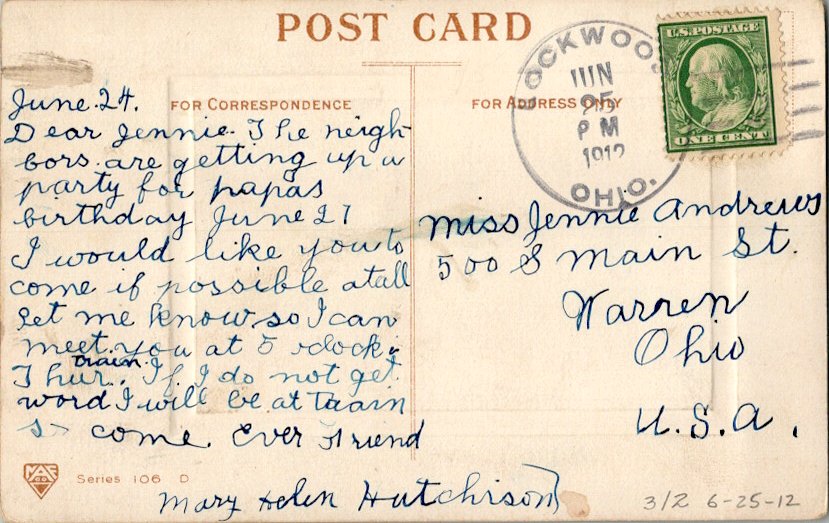 POST CARD
LOCKWOOD
JUN
25
PM
1912
OHIO.
U.S. POSTAGE
ONE CENT
FOR CORRESPONDENCE
FOR ADDRESS ONLY
June 24.
Dear Jennie. The neigh-
bors are getting up a
party for papas
birthday June 27
I would like you to
come if possible atall
Let me know so I can
meet you at 5 oclock
train.
Thur. If I do not get
word I will be at taain
so come. Ever Friend
Mary Helen Hutchison
Miss Jennie Andrews
500 S Main St.
Warren
Ohio
U.S.A.
Series 106 D
3/2 6-25-12